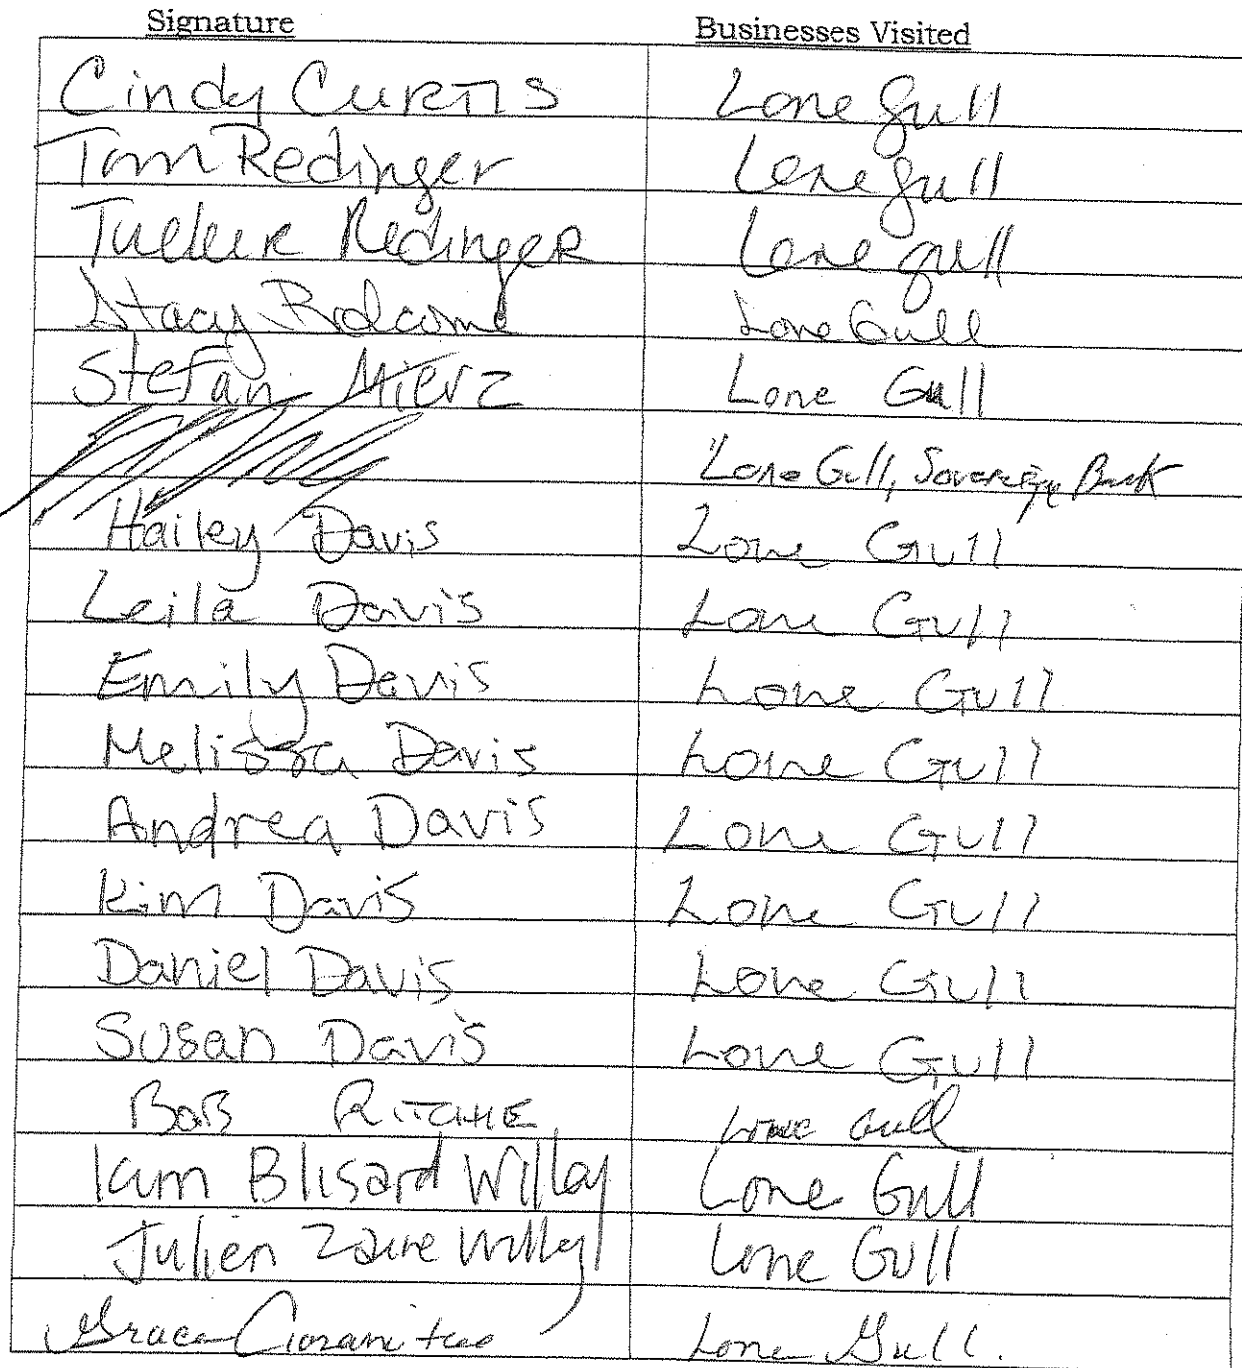 Signature Businesses Visited
Cindy Curtis Lone Gull
Tom Redinger Lone Gull
Redinger Lone gull
Stacy Lone Gull
Stefan Mierz Lone Gull
Lone Gull, Sovereign Bank
Hailey Davis Lone Gull
Leila Davis Lone Gull
Emily Davis Lone Gull
Melissa Davis Lone Gull
Andrea Davis Lone Gull
Kim Davis Lone Gull
Daniel Davis Lone Gull
Susan Davis Lone Gull
BoB RITCHIE Lone Gull
Blisard Willey Lone Gull
Julien Zaire Willey Lone Gull
Grace Lone Gull.